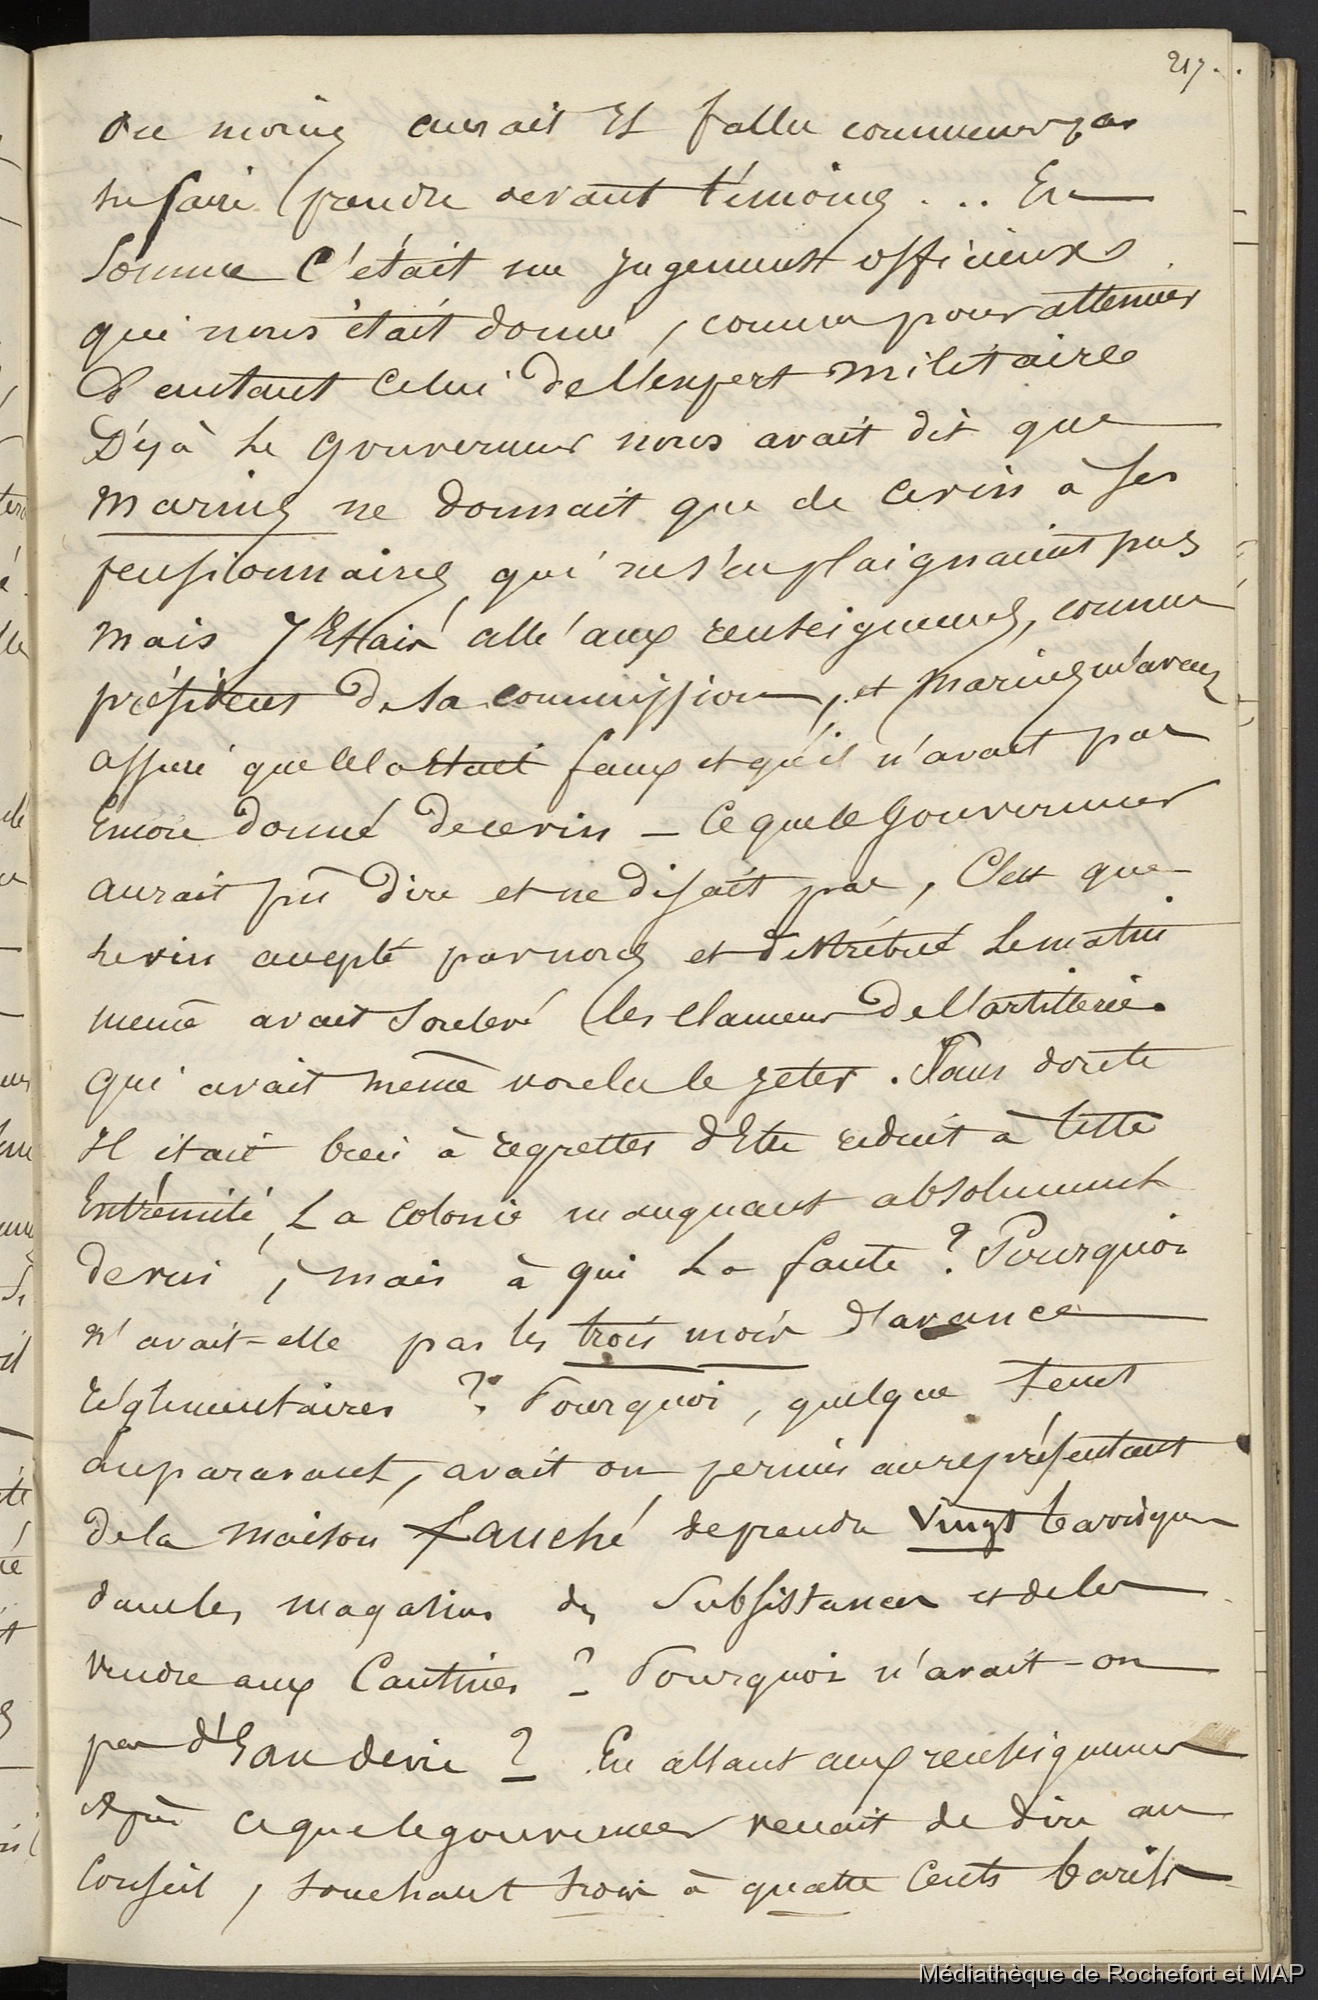 217.
du moins aurait il fallu commencer par
le faire prendre devant témoins ... En
Somme C'était un jugement officieux
qui nous était donné, comme pour attenuer
D'autant Celui de l'expert militaire
Déjà le gouverneur nous avait dit que
marius ne donnait que de ce vin à ses
pensionnaires, qui ne s'en plaignaient pas
mais J'Etais allé aux renseignemens, comme
président de la commission, et marius m'avait
assuré que Cela était faux et qu'il n'avait pas
Encore donné de ce vin - Ce que le gouverneur
aurait pû dire et ne disait pas, C'est que
le vin accepté par nous et distribué le matin
même avait soulevé les clameurs de l'artillerie
qui avait même voulu le jeter. Sans doute
Il était bien à regretter d'Etre réduit à cette
Extrémité, La colonie manquant absolument
de vin, mais à qui la faute ? Pourquoi
n'avait-elle pas les trois mois d'avance
réglementaires ? Pourquoi, quelque tems
auparavant, avait on permis au représentant
de la maison fauché de prendre vingt barriques
dans les magasins des Subsistances et de les
vendre aux Cantines ? Pourquoi n'avait-on
pas d'Eau de vie ? En allant aux renseignemens
Après ce que le gouverneur venait de dire au
Conseil, touchant trois à quatre Cents barils
Médiathèque de Rochefort et MAP